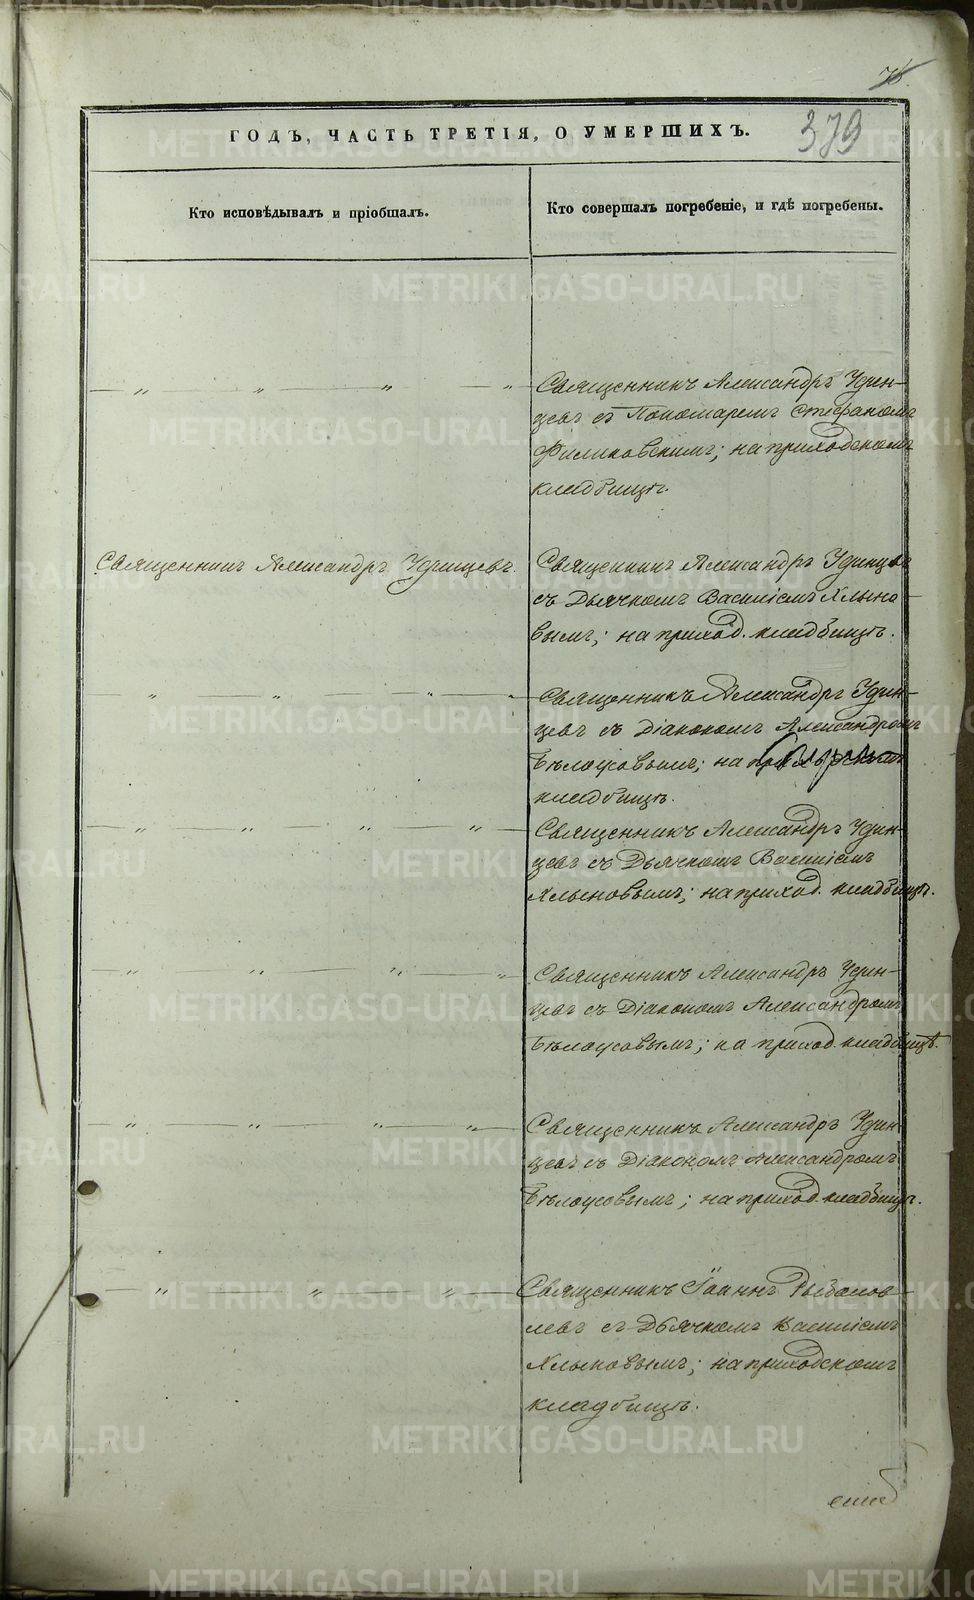 379
ГОДЪ, ЧАСТЬ ТРЕТІЯ, О УМЕРШИХЪ.
Кто исповѣдывалъ и пріобщалъ.
Кто совершалъ погребеніе, и гдѣ погребены.
— „ „ — „ — „ —
Священникъ Александръ Удин-
цевъ съ Пономаремъ Стефаномъ
на приходскомъ
кладбищѣ.
Священникъ Александръ Удинцевъ.
Священникъ Александръ Удинцевъ
съ Дьячкомъ Василіемъ Хлыно-
вымъ; на приход. кладбищѣ.
— „ — „ — „ — „
Священникъ Александръ Удин-
цевъ съ Діакономъ Александромъ
Бѣлоусовымъ; на
кладбищѣ.
— „ — „ — „ — „ —
Священникъ Александръ Удин-
цевъ съ Дьячкомъ Василіемъ
Хлыновымъ; на приход. кладбищѣ.
— „ — „ — „ — „
Священникъ Александръ Удин-
цевъ съ Діакономъ Александромъ
Бѣлоусовымъ; на приход. кладбищѣ.
— „ — „ — „ — „ —
Священникъ Александръ Удин-
цевъ съ Діакономъ Александромъ
Бѣлоусовымъ; на приход. кладбищѣ.
— „ — „ — „ —
Священникъ Іоаннъ
левъ съ Дьячкомъ Василіемъ
Хлыновымъ; на приходскомъ
кладбищѣ.
METRIKI.GASO-URAL.RU